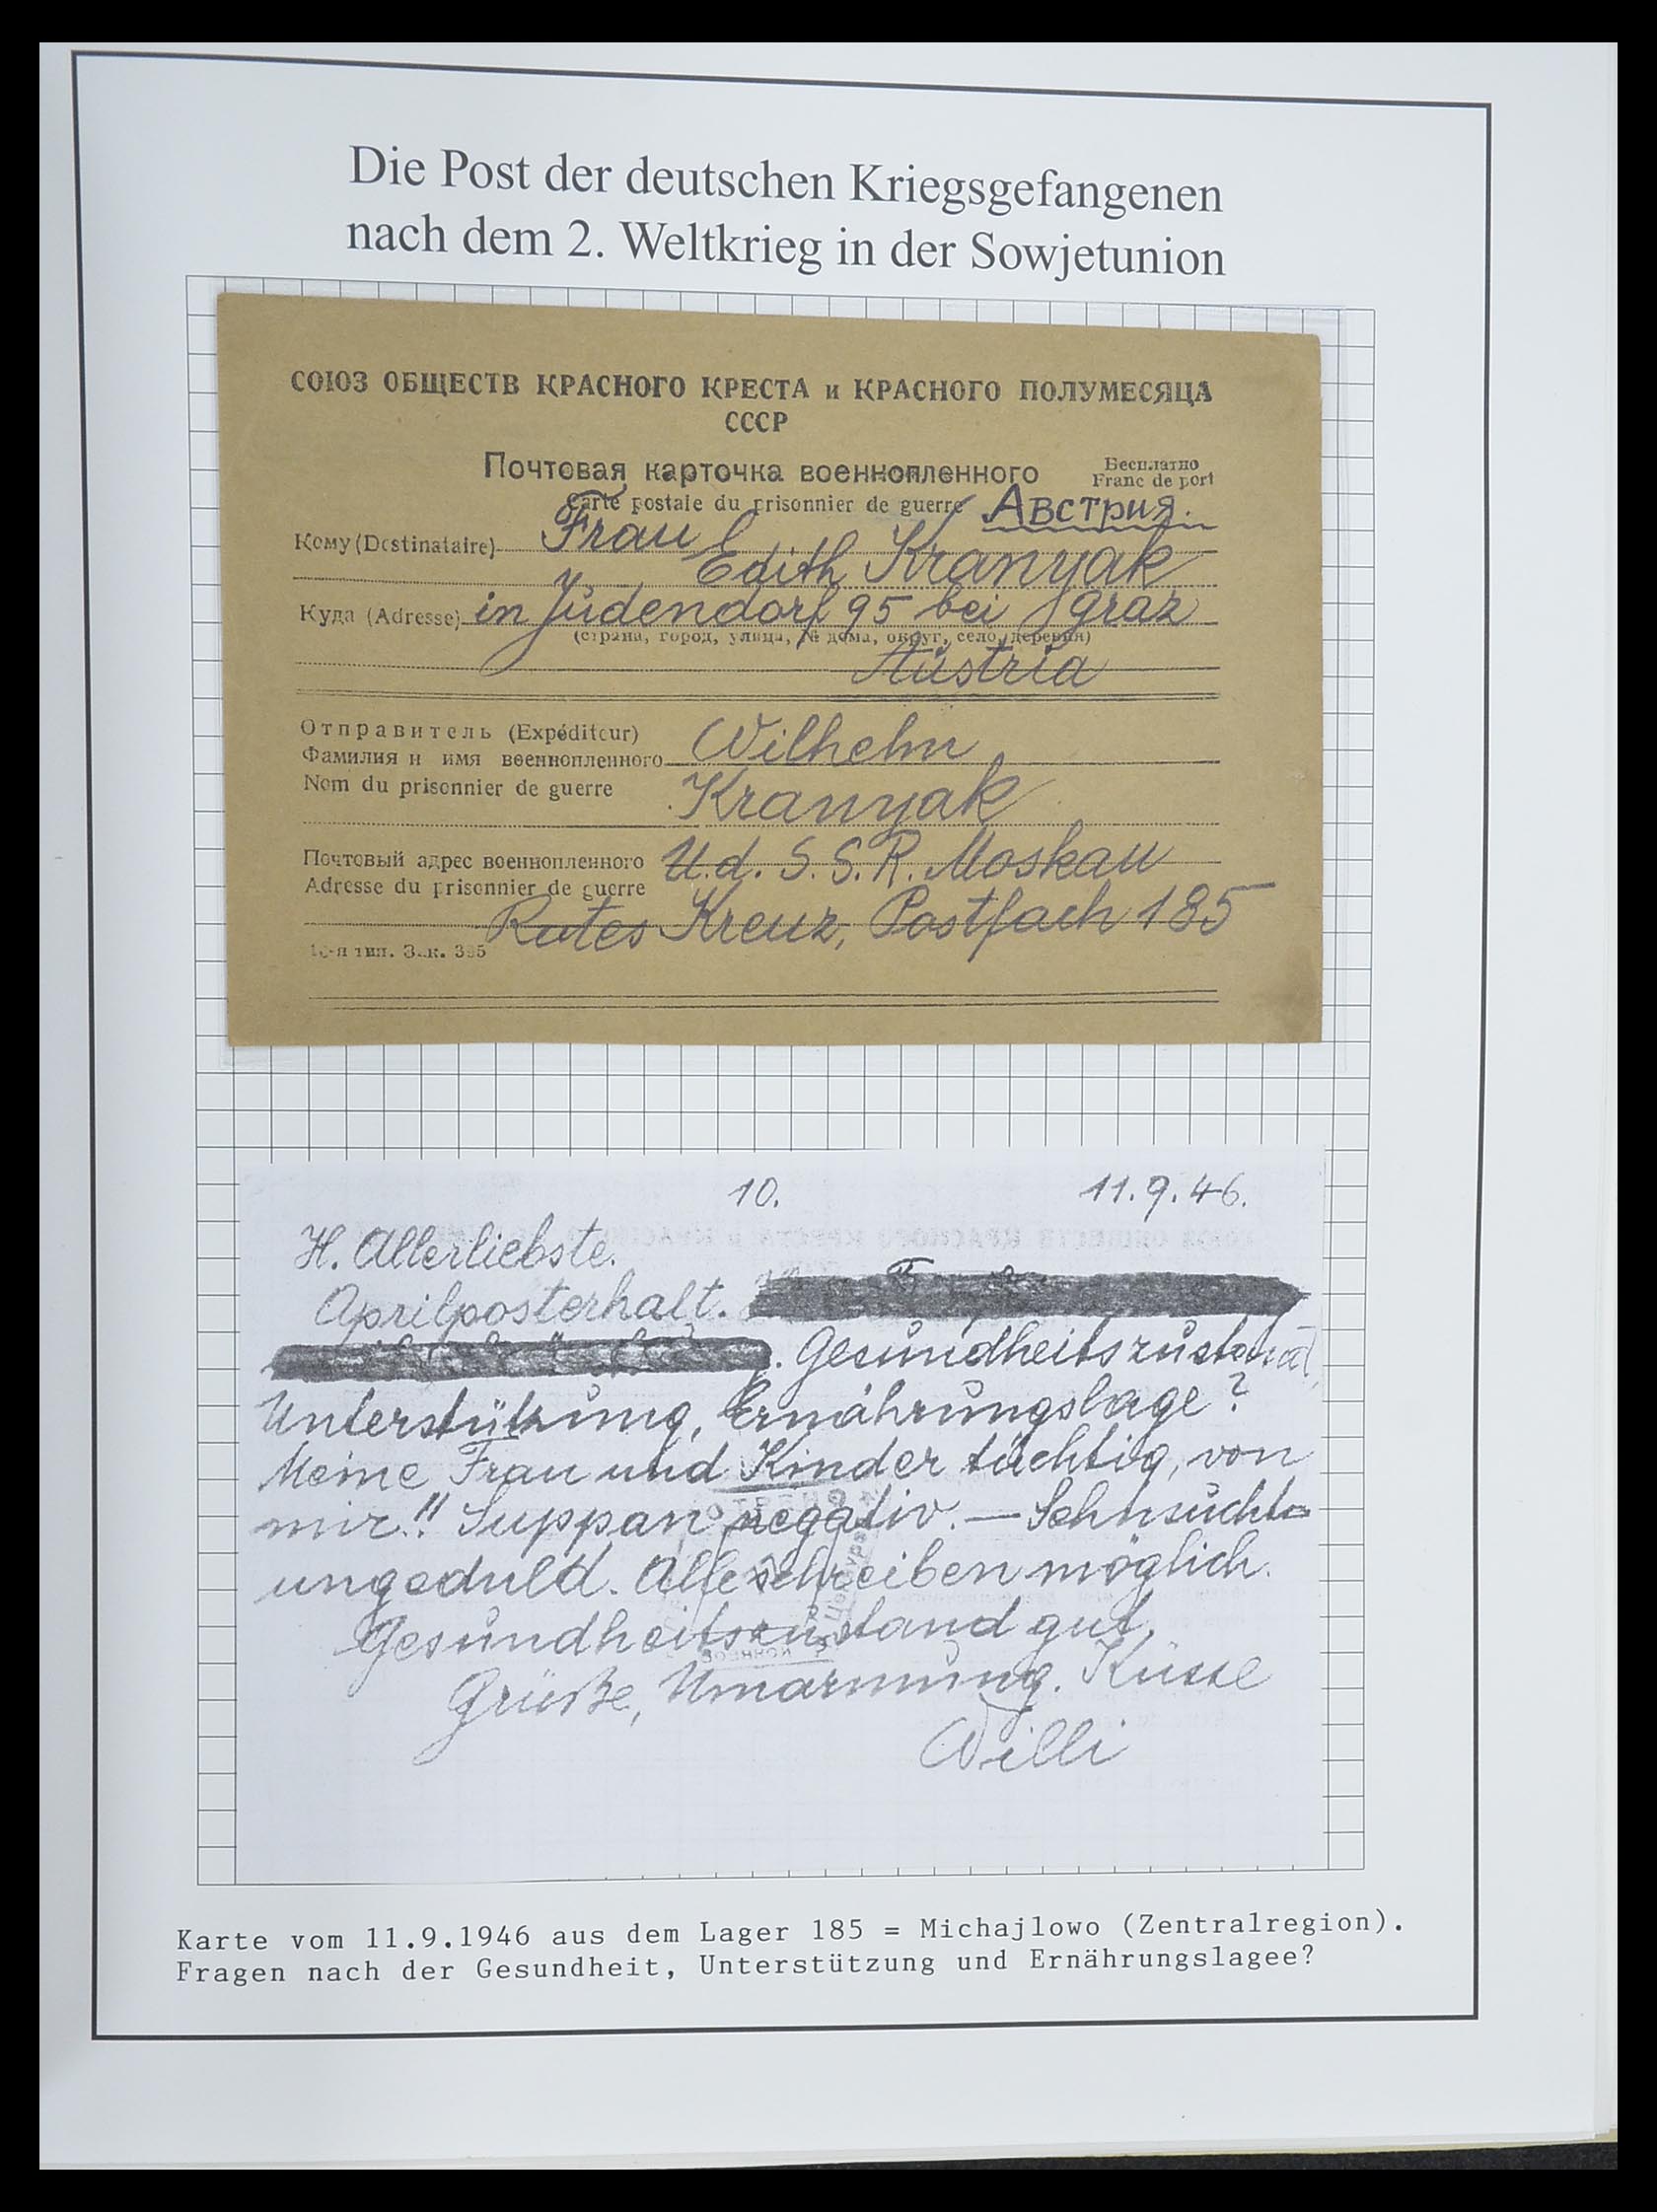 Die Post der deutschen Kriegsgefangenen
nach dem 2. Weltkrieg in der Sowjetunion
СОЮЗ ОБЩЕСТВ КРАСНОГО КРЕСТА и КРАСНОГО ПОЛУМЕСЯЦА
СССР
Почтовая карточка военнопленного
Бесплатно
Franc de port
Carte postale du prisonnier de guerre
Австрия.
Кому (Destinataire) Frau
Edith Kranyak
Куда (Adresse) in Judendorf 95 bei Graz
(страна, город, улица, № дома, округ, село, деревня)
Austria
Отправитель (Expéditeur)
Фамилия и имя военнопленного Wilhelm
Nom du prisonnier de guerre Kranyak
Почтовый адрес военнопленного U.d.S.S.R. Moskau
Adresse du prisonnier de guerre
Rotes Kreuz, Postfach 185
тип. Зак. 395
10. 11.9.46.
H. Allerliebste.
Aprilposterhalt.
. Gesundheitszustand,
Unterstützung, Ernährungslage?
Meine Frau und Kinder tüchtig, von
mir!! Suppan negativ. — Sehnsuchts
ungeduld. Alle schreiben möglich.
Gesundheitszustand gut.
Grüße, Umarmung. Küsse
Willi
Karte vom 11.9.1946 aus dem Lager 185 = Michajlowo (Zentralregion).
Fragen nach der Gesundheit, Unterstützung und Ernährungslagee?